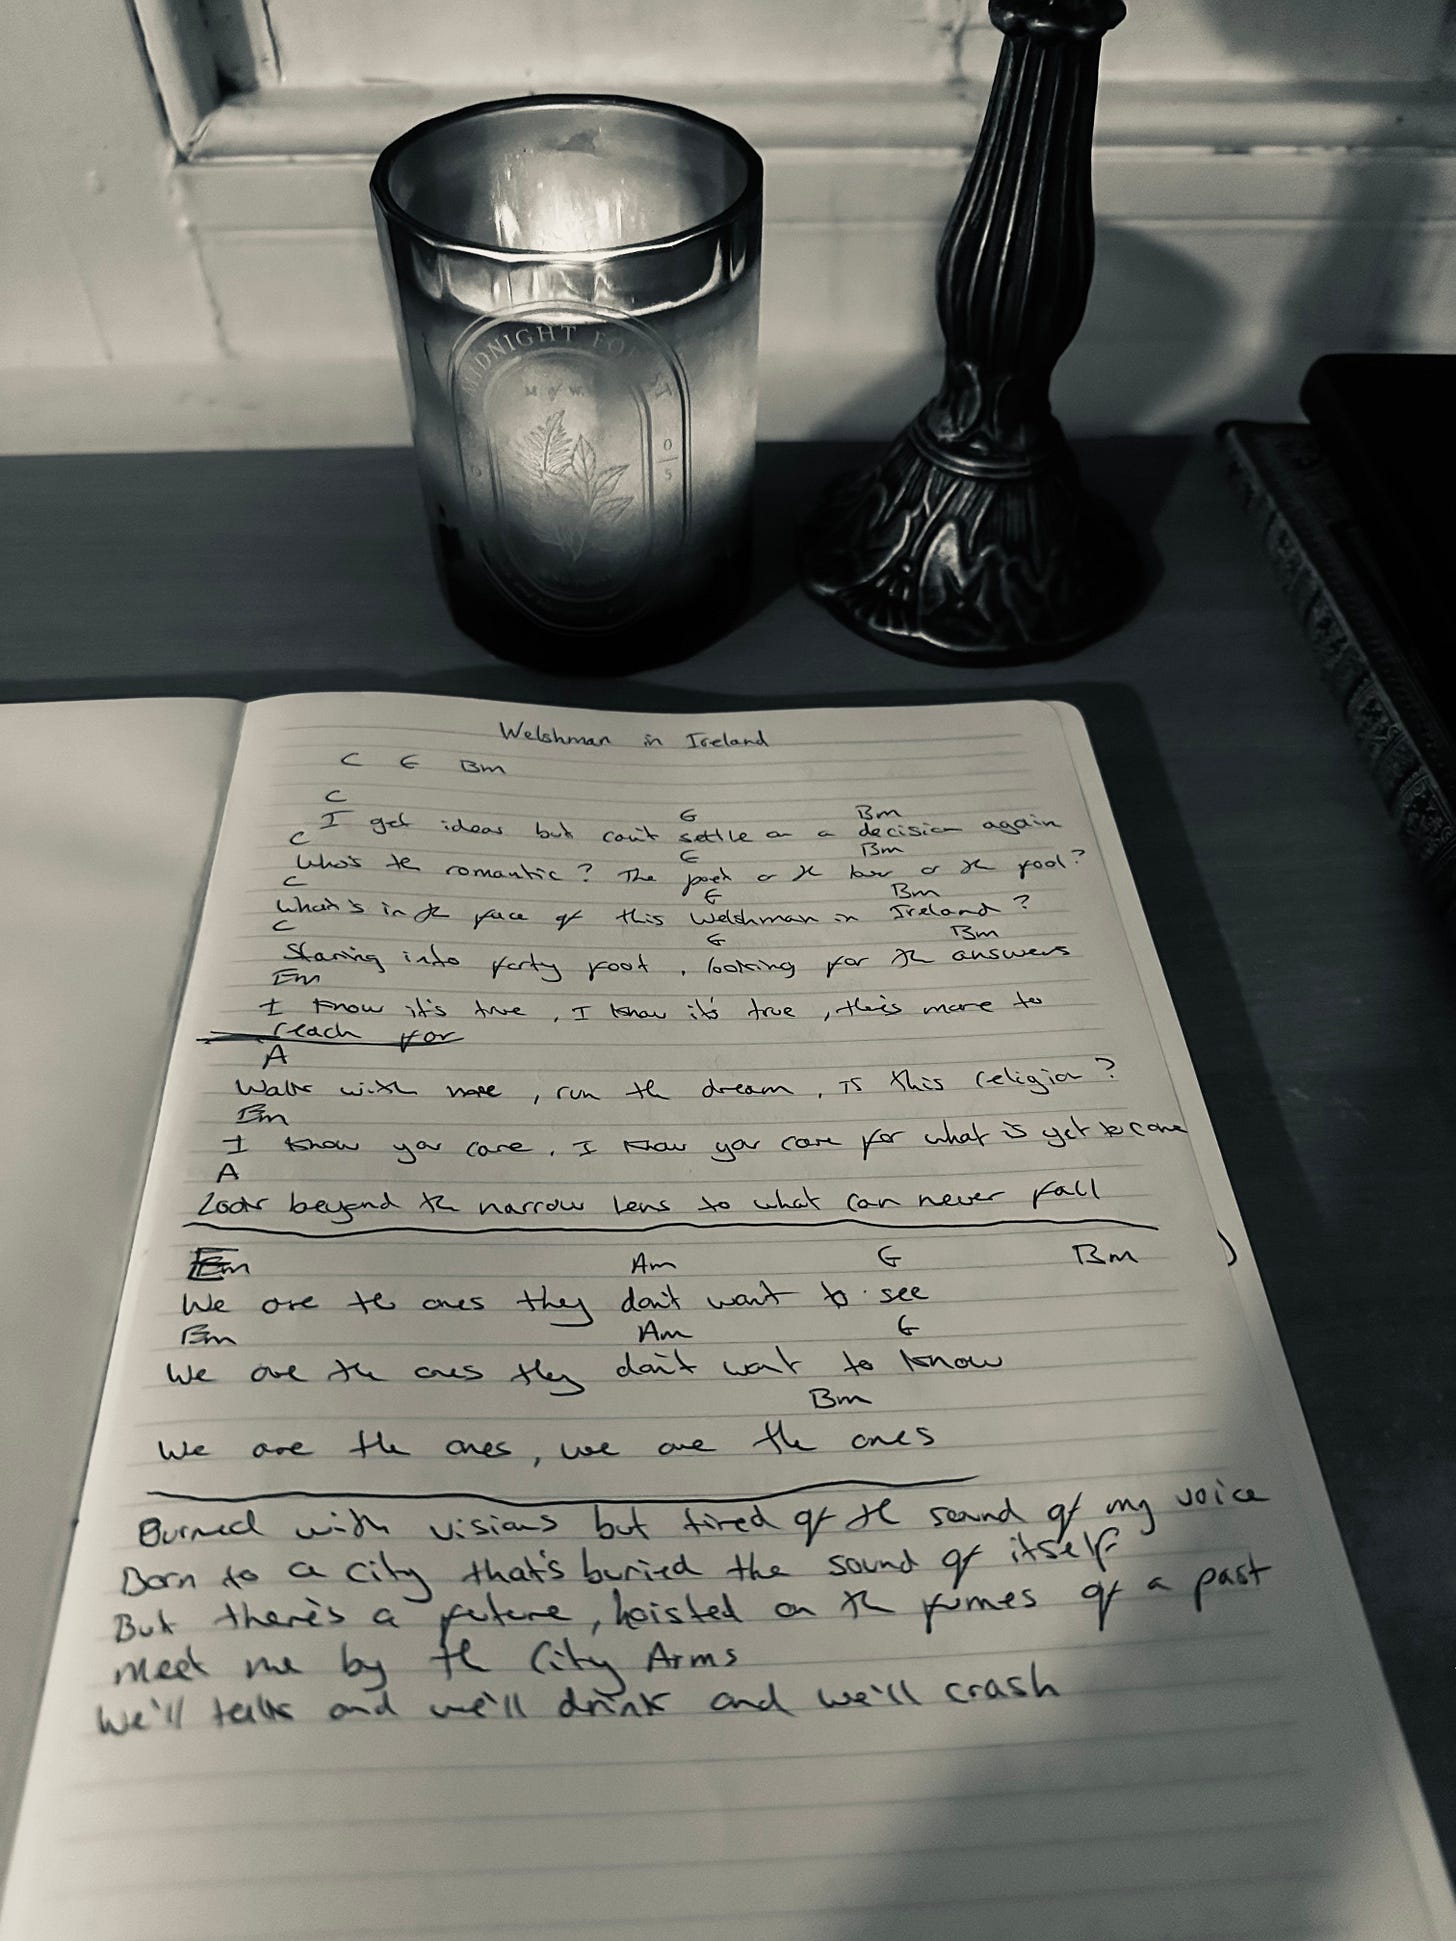 MIDNIGHT FOREST
M of W
0
5
Welshman in Ireland
C G Bm
C G Bm
I get ideas but can't settle on a decision again
C G Bm
Who's the romantic? The poet or the bar or the fool?
C G Bm
What's in the face of this Welshman in Ireland?
C G Bm
Staring into forty foot, looking for the answers
Em
I know it's true, I know it's true, there's more to
reach for
A
Walk with me, run the dream, is this religion?
Em
I know you care, I know you care for what is yet to come
A
Look beyond the narrow lens to what can never fall
Em Am G Bm
We are the ones they don't want to see
Em Am G
We are the ones they don't want to know
Bm
We are the ones, we are the ones
Burned with visions but tired of the sound of my voice
Born to a city that's buried the sound of itself
But there's a future, hoisted on the fumes of a past
Meet me by the City Arms
We'll talk and we'll drink and we'll crash